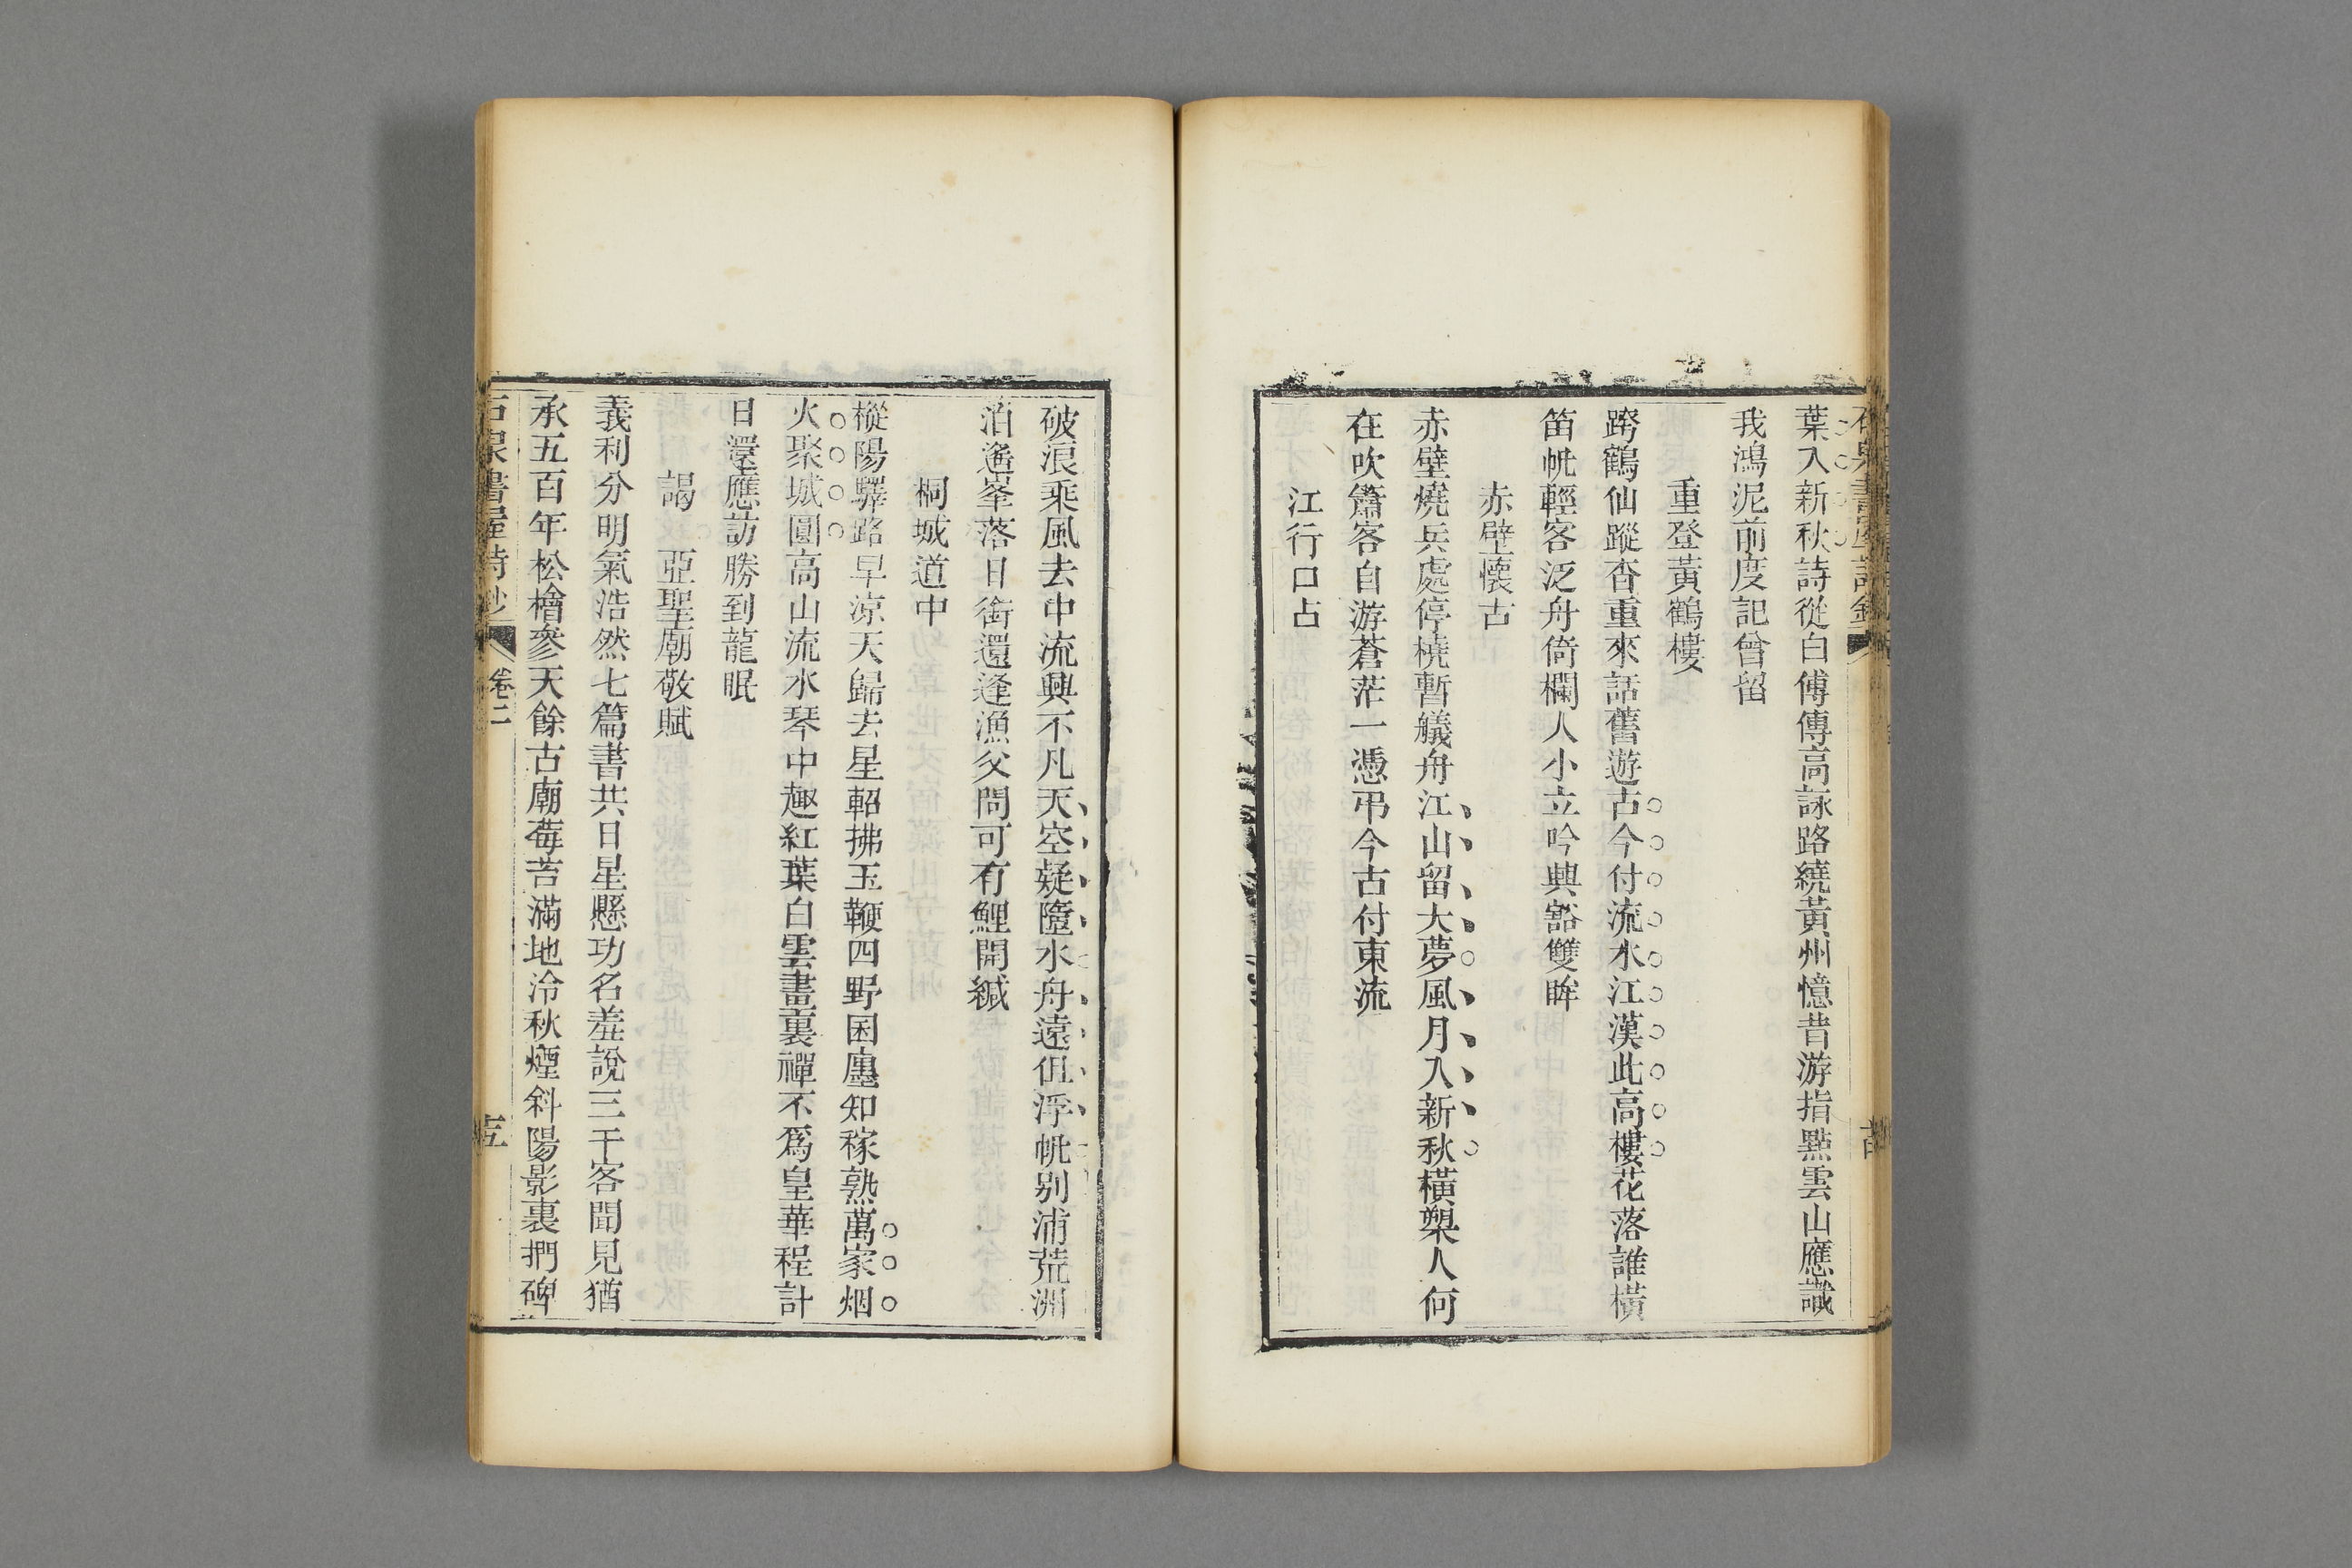 葉入新秋詩從白傅傳高詠路繞黃州憶昔游指點雲山應識
我鴻泥前度記曾留
重登黃鶴樓
跨鶴仙蹤杳重來話舊遊古今付流水江漢此高樓花落誰橫
笛帆輕客泛舟倚欄人小立吟興豁雙眸
赤壁懷古
赤壁燒兵處停橈暫艤舟江山留大夢風月入新秋橫槊人何
在吹簫客自游蒼茫一憑弔今古付東流
江行口占
破浪乘風去中流興不凡天空疑墮水舟遠但浮帆別浦荒洲
泊遙峯落日銜還逢漁父問可有鯉開緘
桐城道中
樅陽驛路早涼天歸去星軺拂玉鞭四野囷廛知稼熟萬家烟
火聚城圓高山流水琴中趣紅葉白雲畫裏禪不爲皇華程計
日還應訪勝到龍眠
謁　亞聖廟敬賦
義利分明氣浩然七篇書共日星懸功名羞說三千客聞見猶
承五百年松檜參天餘古廟莓苔滿地冷秋煙斜陽影裏捫碑
書屋詩鈔　卷二